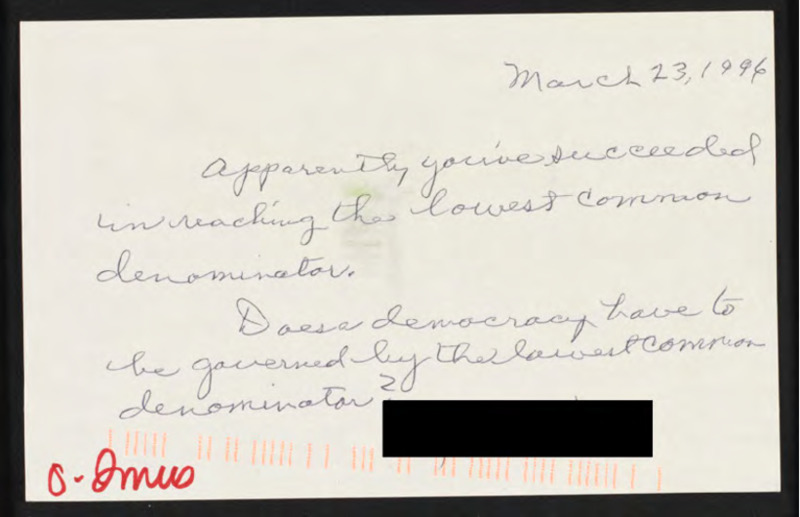 March 23, 1996
Apparently you've succeeded
in reaching the lowest common
denominator.
Does a democracy have to
be governed by the lowest common
denominator?
O-Imus